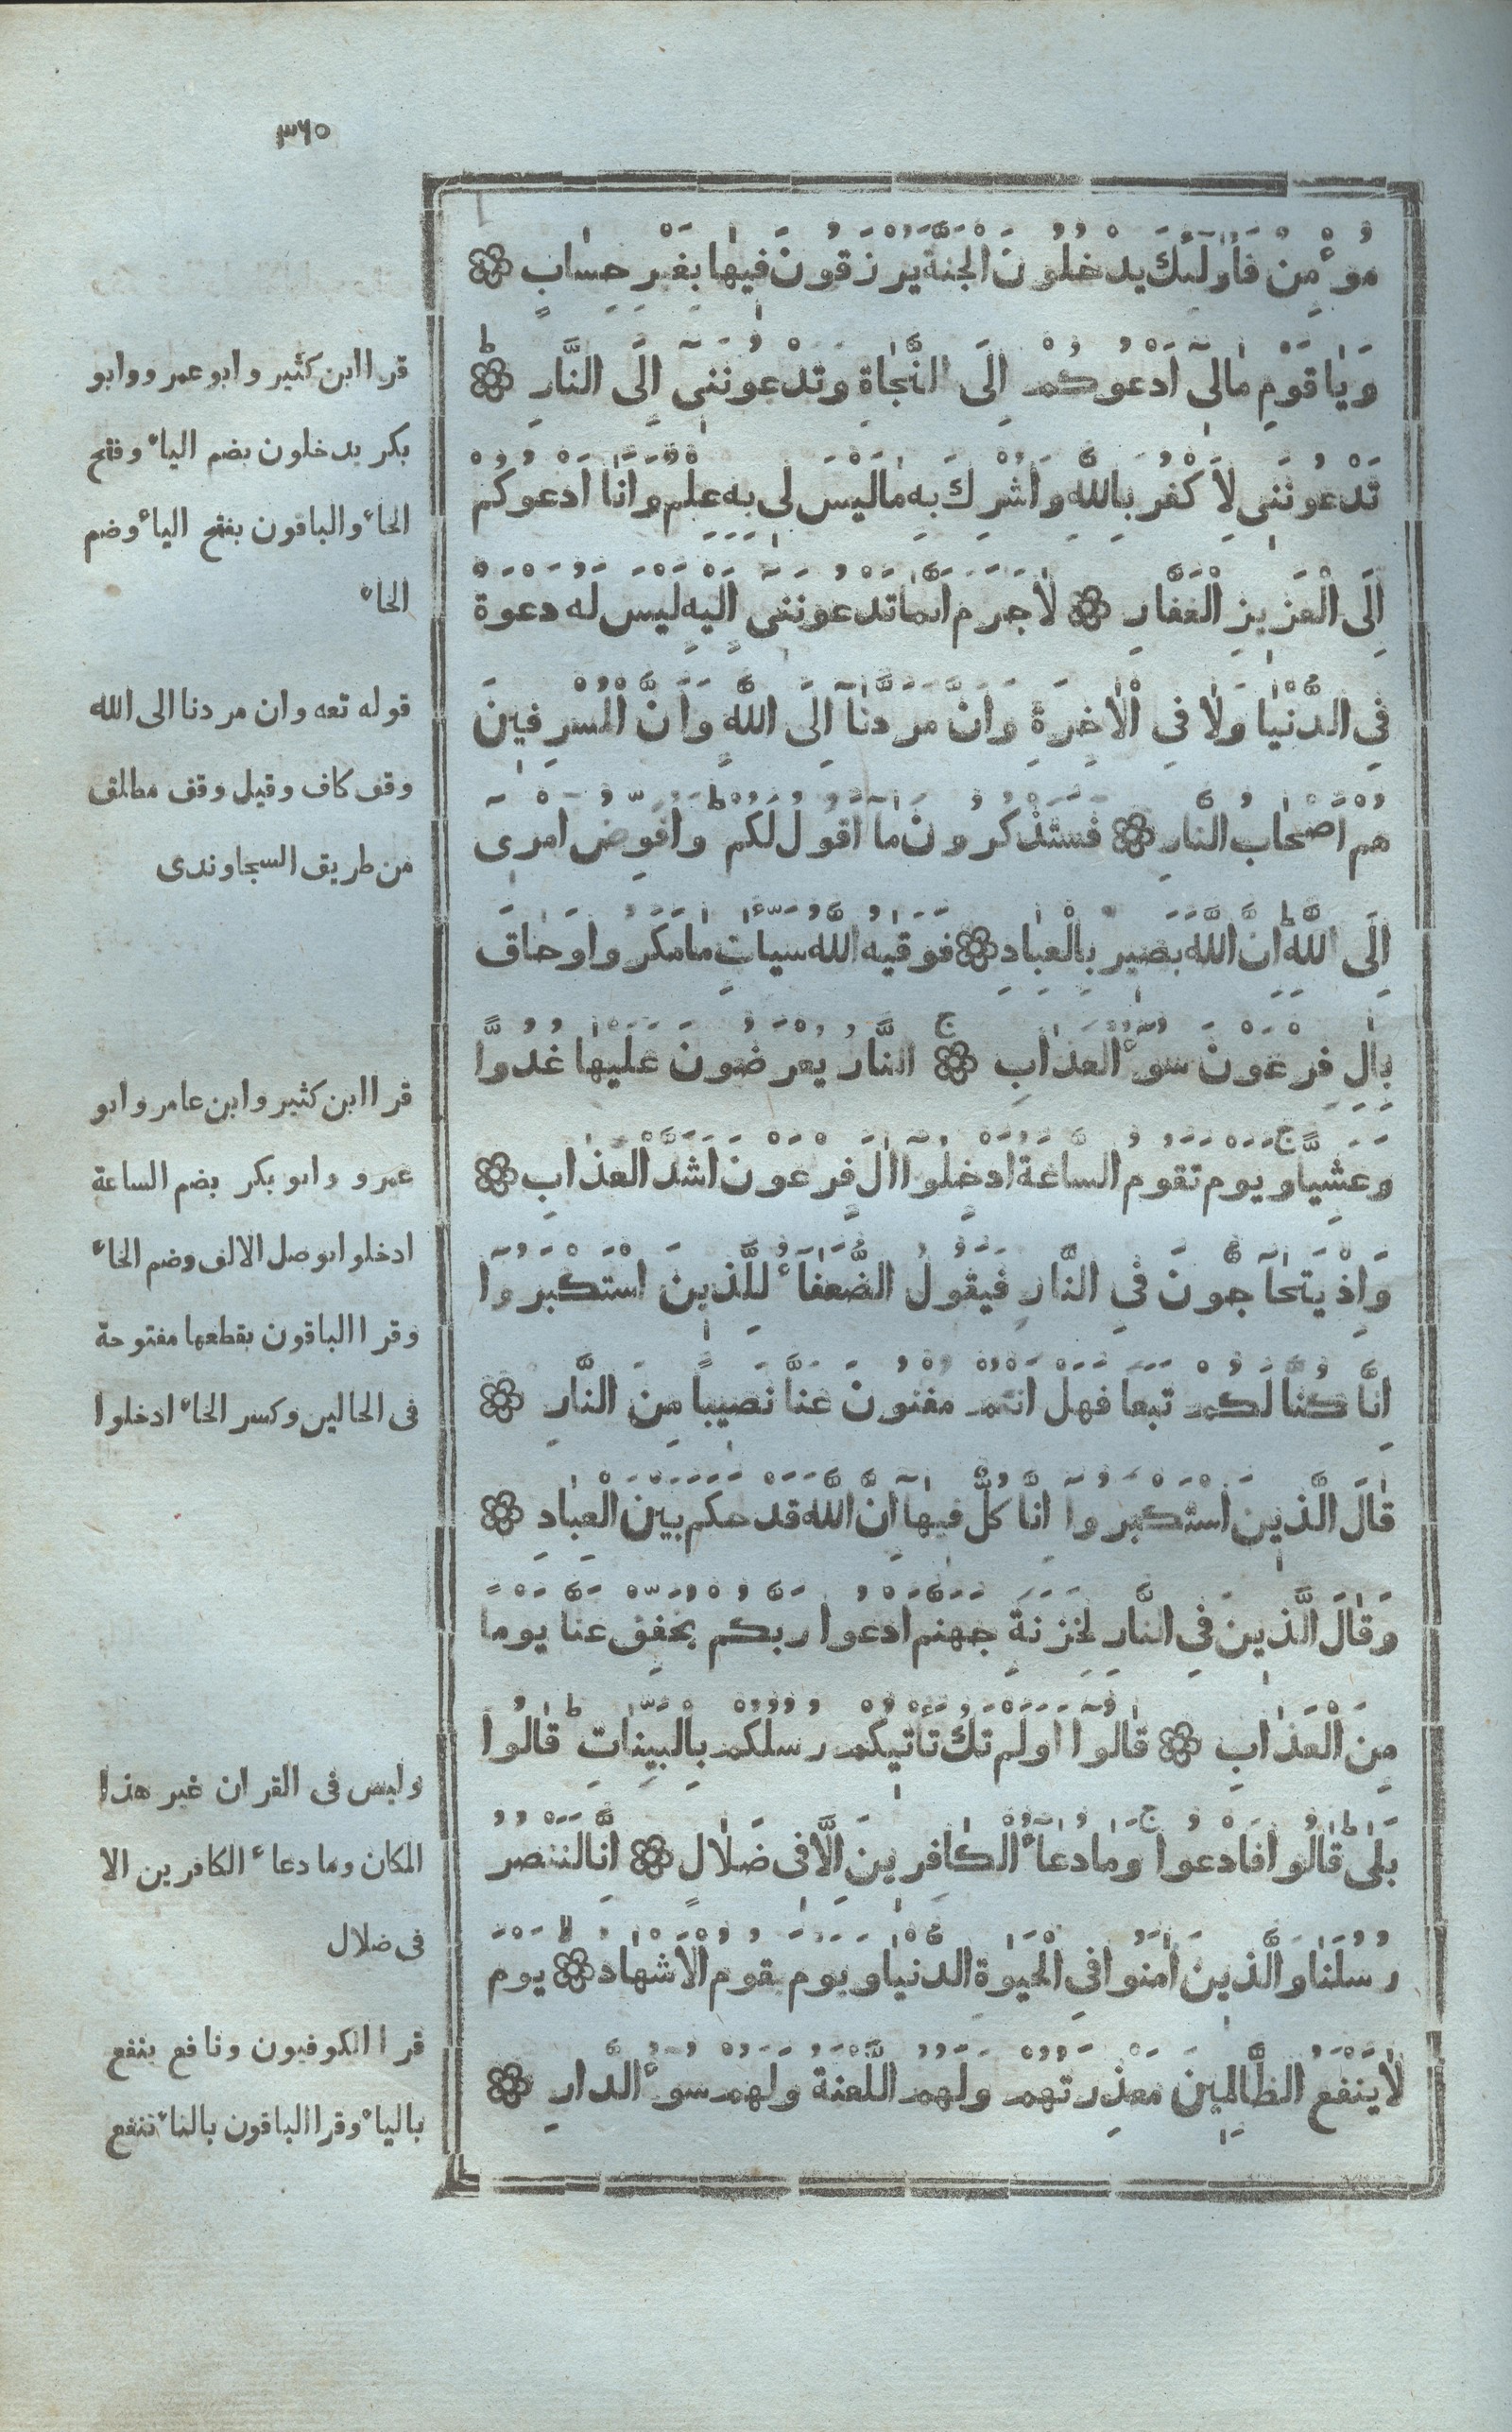 ٣٦٥
مُؤْمِنٌ فَأُولَٰئِكَ يَدْخُلُونَ الْجَنَّةَ يُرْزَقُونَ فِيهَا بِغَيْرِ حِسَابٍ ۝
وَيَا قَوْمِ مَالِىٓ أَدْعُوكُمْ إِلَى النَّجَاةِ وَتَدْعُونَنِىٓ إِلَى النَّارِ ۝ ط
تَدْعُونَنِى لِأَكْفُرَ بِاللَّهِ وَأُشْرِكَ بِهِ مَالَيْسَ لِى بِهِ عِلْمٌ وَأَنَا أَدْعُوكُمْ
إِلَى الْعَزِيزِ الْغَفَّارِ ۝ لَاجَرَمَ أَنَّمَا تَدْعُونَنِىٓ إِلَيْهِ لَيْسَ لَهُ دَعْوَةٌ
فِى الدُّنْيَا وَلَا فِى الْاٰخِرَةِ وَأَنَّ مَرَدَّنَآ إِلَى اللَّهِ وَأَنَّ الْمُسْرِفِينَ
هُمْ أَصْحَابُ النَّارِ ۝ فَسَتَذْكُرُونَ مَآ أَقُولُ لَكُمْ ط وَأُفَوِّضُ أَمْرِىٓ
إِلَى اللَّهِ ط إِنَّ اللَّهَ بَصِيرٌ بِالْعِبَادِ ۝ فَوَقَيهُ اللَّهُ سَيِّـَٔاتِ مَا مَكَرُوا وَحَاقَ
بِاٰلِ فِرْعَوْنَ سُوٓءُ الْعَذَابِ ۝ ج النَّارُ يُعْرَضُونَ عَلَيْهَا غُدُوًّا
وَعَشِيًّا ج وَيَوْمَ تَقُومُ السَّاعَةُ أَدْخِلُوٓا اٰلَ فِرْعَوْنَ أَشَدَّ الْعَذَابِ ۝
وَإِذْ يَتَحَآجُّونَ فِى النَّارِ فَيَقُولُ الضُّعَفَآءُ لِلَّذِينَ اسْتَكْبَرُوٓا
إِنَّا كُنَّا لَكُمْ تَبَعًا فَهَلْ أَنْتُمْ مُغْنُونَ عَنَّا نَصِيبًا مِنَ النَّارِ ۝
قَالَ الَّذِينَ اسْتَكْبَرُوٓا إِنَّا كُلٌّ فِيهَآ إِنَّ اللَّهَ قَدْ حَكَمَ بَيْنَ الْعِبَادِ ۝
وَقَالَ الَّذِينَ فِى النَّارِ لِخَزَنَةِ جَهَنَّمَ ادْعُوا رَبَّكُمْ يُخَفِّفْ عَنَّا يَوْمًا
مِنَ الْعَذَابِ ۝ قَالُوٓا أَوَلَمْ تَكُ تَأْتِيكُمْ رُسُلُكُمْ بِالْبَيِّنَاتِ ط قَالُوا
بَلَى ط قَالُوا فَادْعُوا ج وَمَا دُعَآءُ الْكَافِرِينَ إِلَّا فِى ضَلَالٍ ۝ إِنَّا لَنَنْصُرُ
رُسُلَنَا وَالَّذِينَ اٰمَنُوا فِى الْحَيٰوةِ الدُّنْيَا وَيَوْمَ يَقُومُ الْأَشْهَادُ ۝ لا يَوْمَ
لَا يَنْفَعُ الظَّالِمِينَ مَعْذِرَتُهُمْ وَلَهُمُ اللَّعْنَةُ وَلَهُمْ سُوٓءُ الدَّارِ ۝
قرا ابن كثير وابو عمر ووابو
بكر يدخلون بضم الياء وفتح
الخاء والباقون بفتح الياء وضم
الخاء
قوله تعه وان مردنا الى الله
وقف كاف وقيل وقف مطلق
من طريق السجاوندى
قرا ابن كثير وابن عامر وابو
عمرو وابو بكر بضم الساعة
ادخلوا بوصل الالف وضم الخاء
وقرا الباقون بقطعها مفتوحة
فى الحالين وكسر الخاء ادخلوا
وليس فى القران غير هذا
المكان وما دعاء الكافرين الا
فى ضلال
قرا الكوفيون ونافع ينفع
بالياء وقرا الباقون بالتاء تنفع